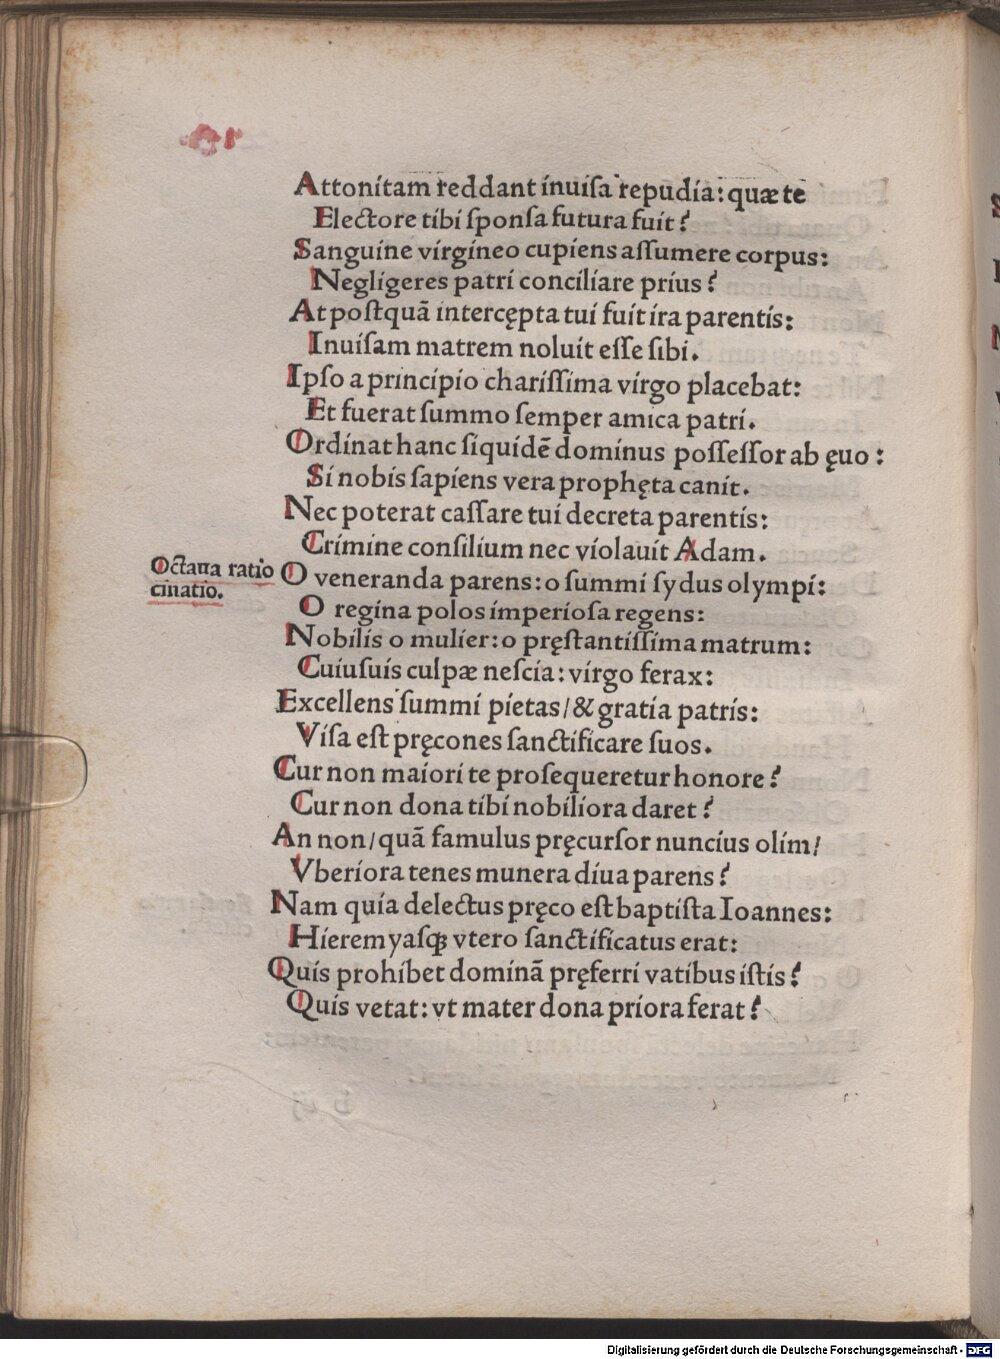 Attonitam reddant inuiſa repudia: quæ te
Electore tibi ſponſa futura fuit?
Sanguine virgineo cupiens aſſumere corpus:
Negligeres patri conciliare prius?
At poſtquã intercępta tui fuit ira parentis:
Inuiſam matrem noluit eſſe ſibi.
Ipſo a principio chariſſima virgo placebat:
Et fuerat ſummo ſemper amica patri.
Ordinat hanc ſiquidẽ dominus poſſeſſor ab ęuo:
Si nobis ſapiens vera prophęta canit.
Nec poterat caſſare tui decreta parentis:
Crimine conſilium nec violauit Adam.
Octaua ratio
cinatio.
O veneranda parens: o ſummi ſydus olympi:
O regina polos imperioſa regens:
Nobilis o mulier: o pręſtantiſſima matrum:
Cuiuſuis culpæ neſcia: virgo ferax:
Excellens ſummi pietas/ & gratia patris:
Viſa eſt pręcones ſanctificare ſuos.
Cur non maiori te proſequeretur honore?
Cur non dona tibi nobiliora daret?
An non/ quã famulus pręcurſor nuncius olim/
Vberiora tenes munera diua parens?
Nam quia delectus pręco eſt baptiſta Ioannes:
Hieremyaſqꝫ vtero ſanctificatus erat:
Quis prohibet dominã pręferri vatibus iſtis?
Quis vetat: vt mater dona priora ferat?
Digitalisierung gefördert durch die Deutsche Forschungsgemeinschaft - DFG